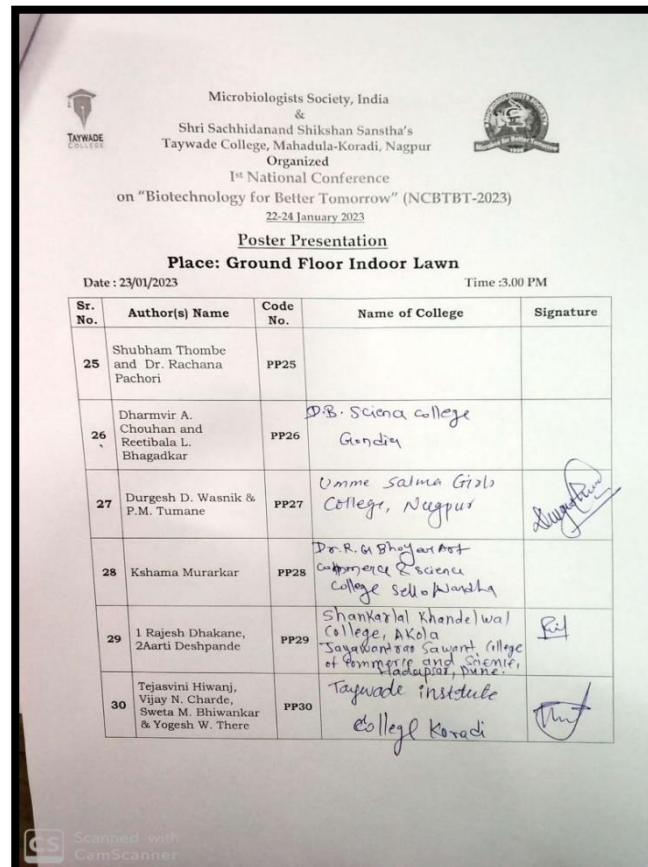 TAYWADE
COLLEGE
Microbiologists Society, India
&
Shri Sachhidanand Shikshan Sanstha's
Taywade College, Mahadula-Koradi, Nagpur
Organized
Ist National Conference
on "Biotechnology for Better Tomorrow" (NCBTBT-2023)
22-24 January 2023
Poster Presentation
Place: Ground Floor Indoor Lawn
Date : 23/01/2023 Time :3.00 PM
Sr. No. Author(s) Name Code No. Name of College Signature
25 Shubham Thombe
and Dr. Rachana
Pachori PP25
26 Dharmvir A.
Chouhan and
Reetibala L.
Bhagadkar PP26 D.B. Science college
Gondia
27 Durgesh D. Wasnik &
P.M. Tumane PP27 Umme Salma Girls
College, Nagpur
28 Kshama Murarkar PP28 Dr. R. G Bhoyar Art
Commerce & science
college Sello/Wardha
29 1 Rajesh Dhakane,
2Aarti Deshpande PP29 Shankarlal Khandelwal
College, Akola
Jayawantrao Sawant College
of Commerce and Science,
Hadapsar, Pune.
30 Tejasvini Hiwanj,
Vijay N. Charde,
Sweta M. Bhiwankar
& Yogesh W. There PP30 Taywade institute
College Koradi
CS Scanned with
CamScanner